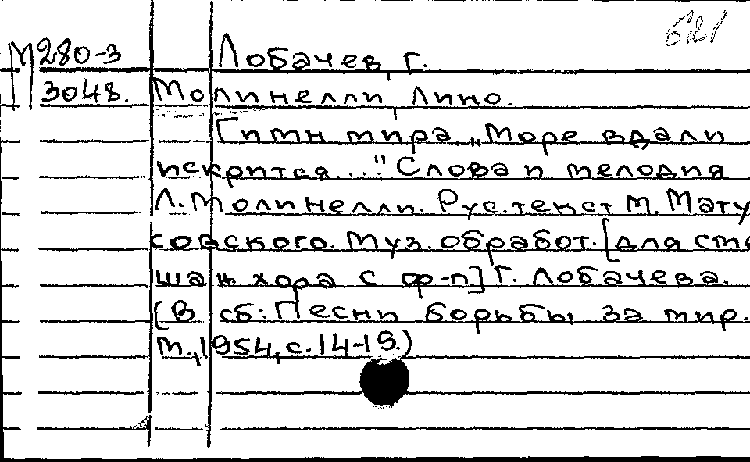 621
М280-3 Лобачев, Г.
3048. Молинелли, Лино.
Гимн мира „Море вдали
искрится..." Слова и мелодия
Л. Молинелли. Рус. текст М. Мату
совского. Муз. обработ. [для
шан хора с ф-п] Г. Лобачева.
[В сб: Песни борьбы за мир.
М., 1954, с. 14-19.)